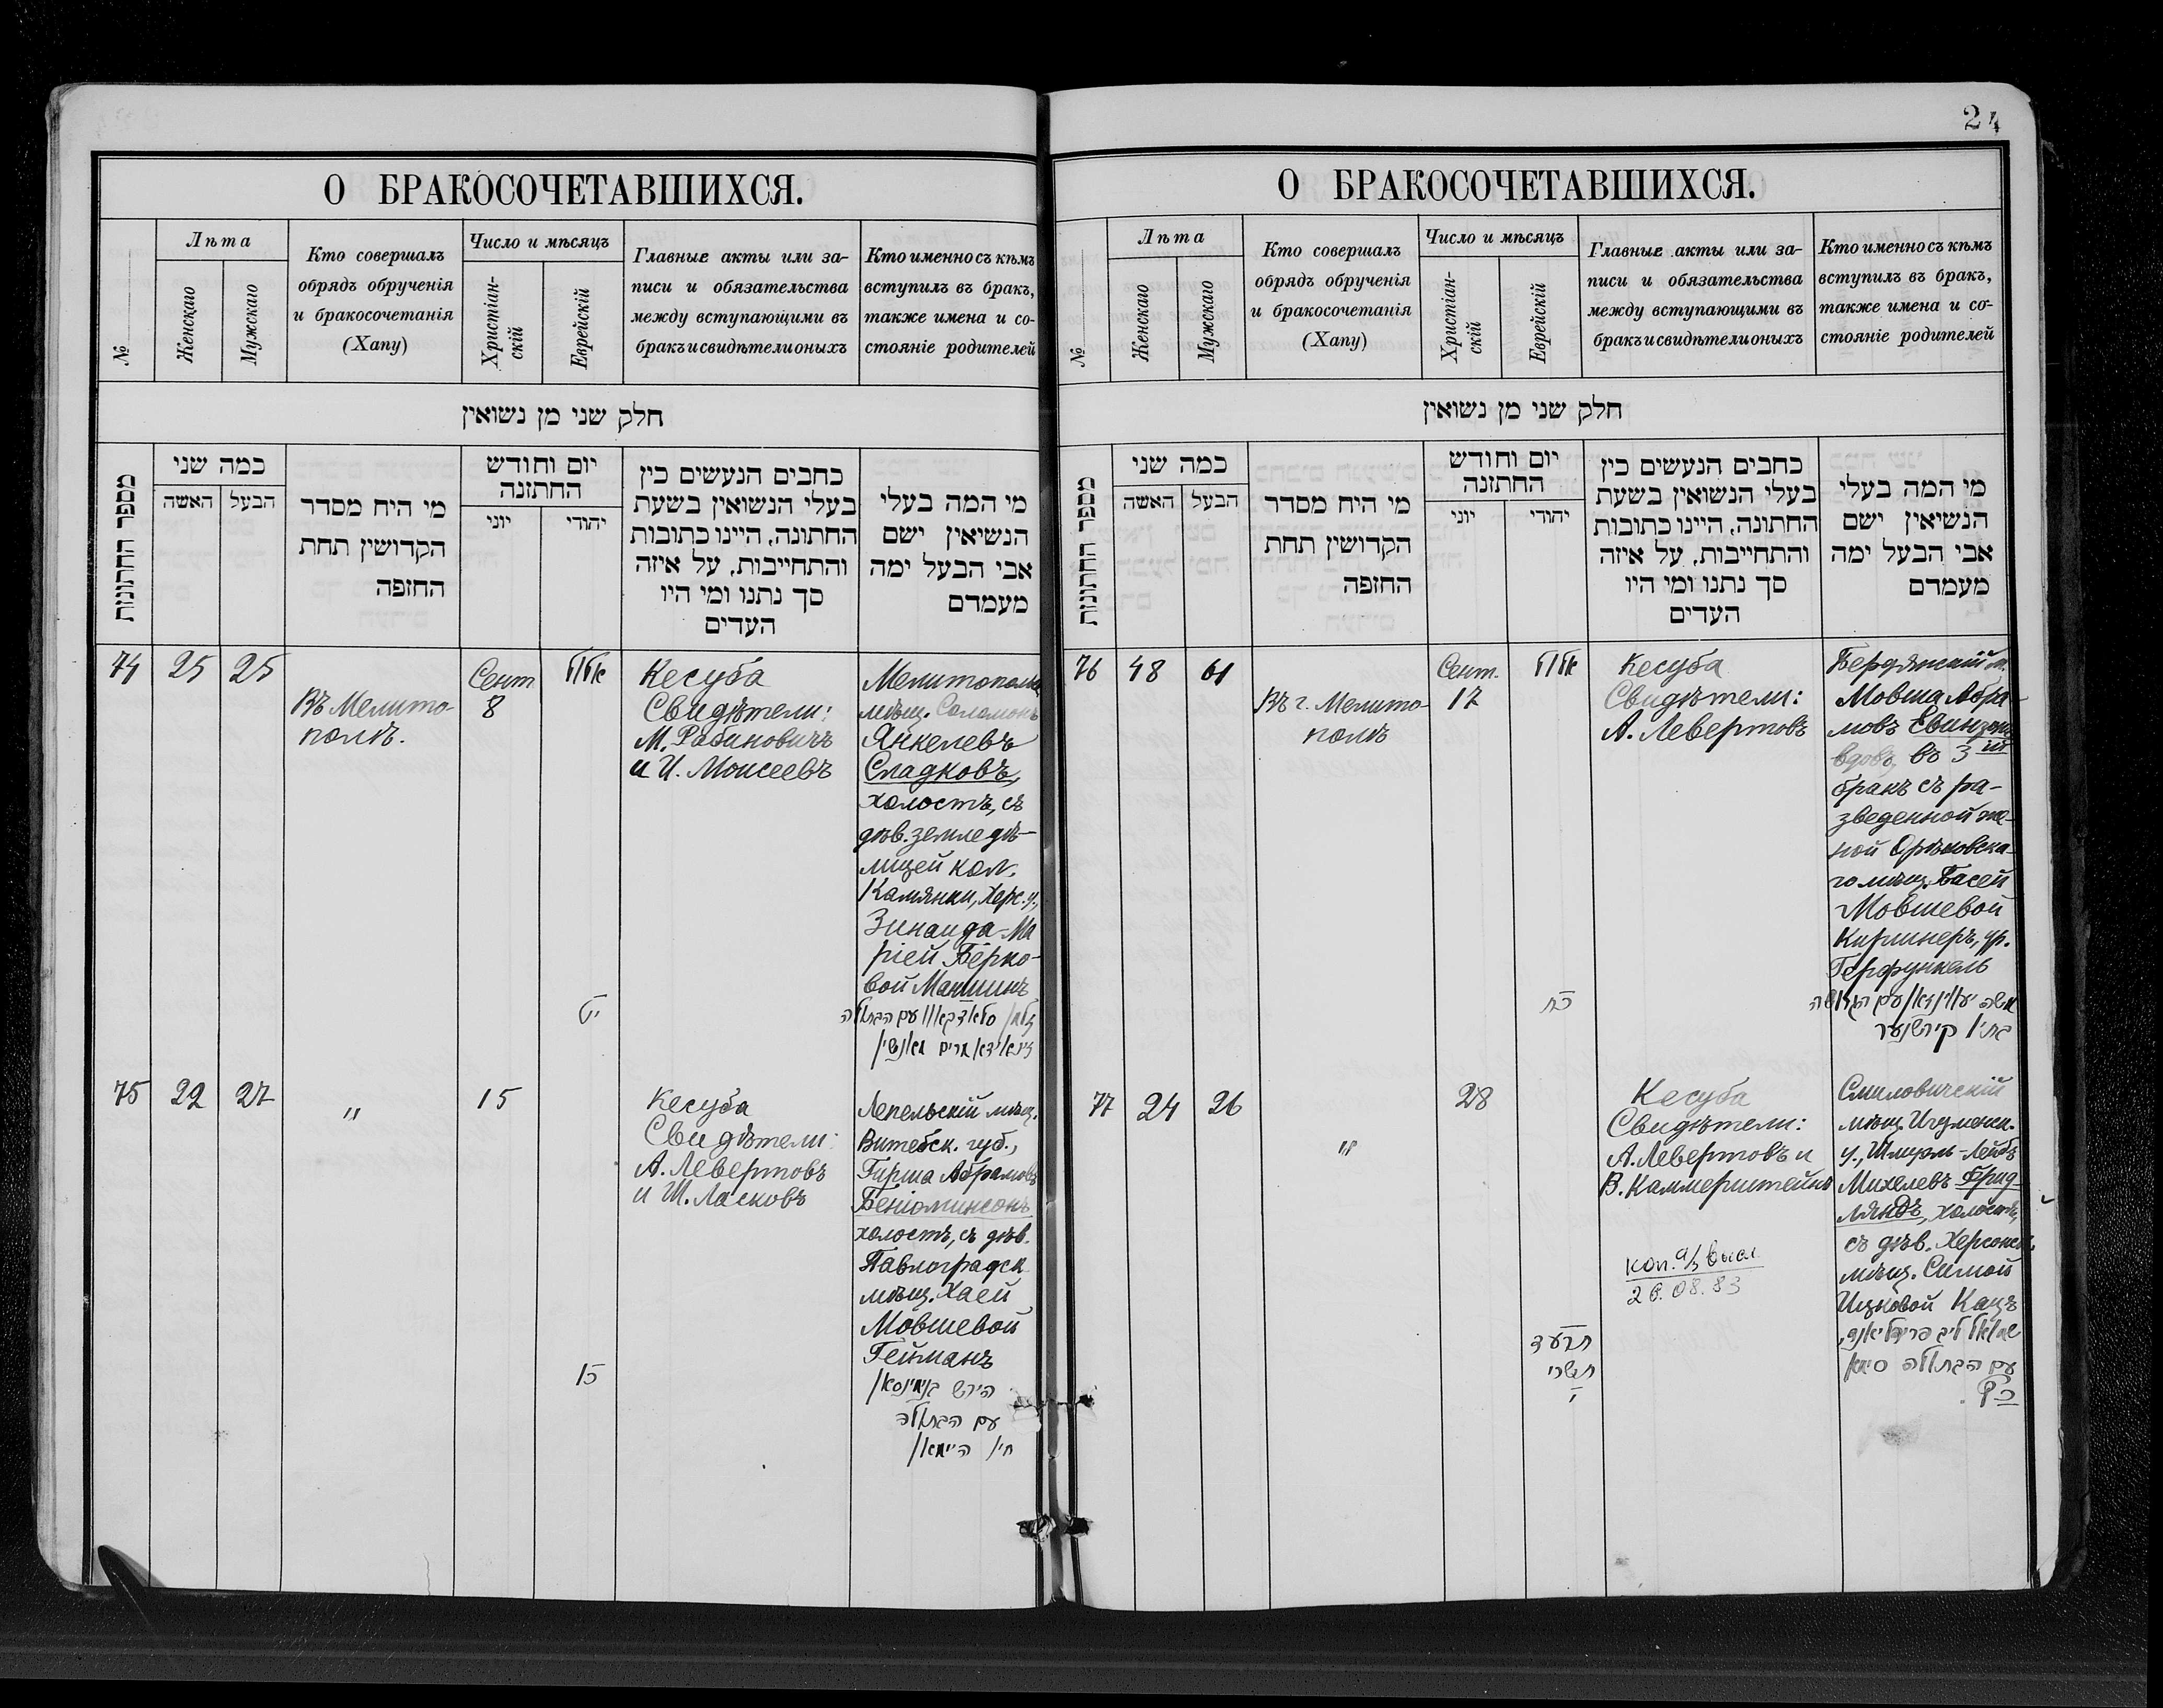 24
О БРАКОСОЧЕТАВШИХСЯ.
№
Лѣта
Женскаго
Мужскаго
Кто совершалъ
обрядъ обрученія
и бракосочетанія
(Хапу)
Число и мѣсяцъ
Христіан-
скій
Еврейскій
Главные акты или за-
писи и обязательства
между вступающими въ
бракъ и свидѣтели оныхъ
Кто именно съ кѣмъ
вступилъ въ бракъ,
также имена и со-
стояніе родителей
חלק שני מן נשואין
מספר החתונות
כמה שני
האשה
הבעל
מי היח מסדר
הקדושין תחת
החזפה
יום וחודש
החתזנה
יוני
יהודי
כחבים הנעשים כין
בעלי הנשואין בשעת
החתונה, היינו כתובות
והתחייבות, על איזה
סך נתנו ומי היו
העדים
מי המה בעלי
הנשיאין ישם
אבי הבעל ימה
מעמדם
74
25
25
Въ Мелито-
полѣ.
Сент
8
יט
Кесуба
Свидѣтели:
М. Рабиновичъ
и И. Моисеевъ
мѣщ. Соломонъ
Янкелевъ
Сладковъ,
холостъ, съ
дѣв. земледѣ-
лицей кол.
Камянки, Херс. у.,
Зинаида-Ма
ріей Берко-
вой
75
22
27
"
15
Кесуба
Свидѣтели:
А. Левертовъ
и Ш. Ласковъ
Лепельскій мѣщ.
Витебск. губ.,
Гирша Абрамовъ
Беніоминсонъ
холостъ, съ дѣв.
Павлоградск
мѣщ. Хаей
Мовшевой
Гейманъ
עם הבתולה
О БРАКОСОЧЕТАВШИХСЯ.
№
Лѣта
Женскаго
Мужскаго
Кто совершалъ
обрядъ обрученія
и бракосочетанія
(Хапу)
Число и мѣсяцъ
Христіан-
скій
Еврейскій
Главные акты или за-
писи и обязательства
между вступающими въ
бракъ и свидѣтели оныхъ
Кто именно съ кѣмъ
вступилъ въ бракъ,
также имена и со-
стояніе родителей
חלק שני מן נשואין
מספר החתונות
כמה שני
האשה
הבעל
מי היח מסדר
הקדושין תחת
החזפה
יום וחודש
החתזנה
יוני
יהודי
כחבים הנעשים כין
בעלי הנשואין בשעת
החתונה, היינו כתובות
והתחייבות, על איזה
סך נתנו ומי היו
העדים
מי המה בעלי
הנשיאין ישם
אבי הבעל ימה
מעמדם
76
48
61
Въ г. Мелито-
полѣ
Сент.
17
כח
Кесуба
Свидѣтели:
А. Левертовъ
Бердянскій м.
Мовша Абра-
мовъ
вдов, въ 3 ій
бракъ съ ра-
зведенной же-
ной Орѣховска-
го мѣщ. Басей
Мовшевой
ур.
Герфункель
77
24
26
"
28
תרעד
תשרי
י
Кесуба
Свидѣтели:
А. Левертовъ и
В. Каммерштейнъ
коп. выcл
26.08.83
Смиловичскій
мѣщ. Игуменск.
у., Шмуэль-Лейбъ
Михелевъ Фрид-
ляндъ, холостъ,
съ дѣв. Херсонск.
мѣщ. Симой
Ицковой Кацъ
עם הבתולה סימא
כץ